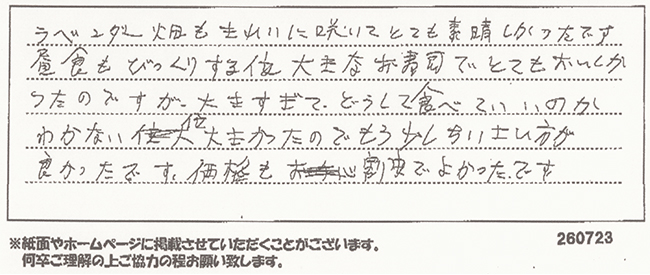 ラベンダー畑もきれいに咲いてとても素晴しかったです
昼食もびっくりする位大きなお寿司でとてもおいしか
ったのですが、大きすぎて、どうして食べていいのか
わかない位大きかったのでもう少しちいさい方が
良かったです、価格もお割安でよかったです
※紙面やホームページに掲載させていただくことがございます。
何卒ご理解の上ご協力の程お願い致します。
260723